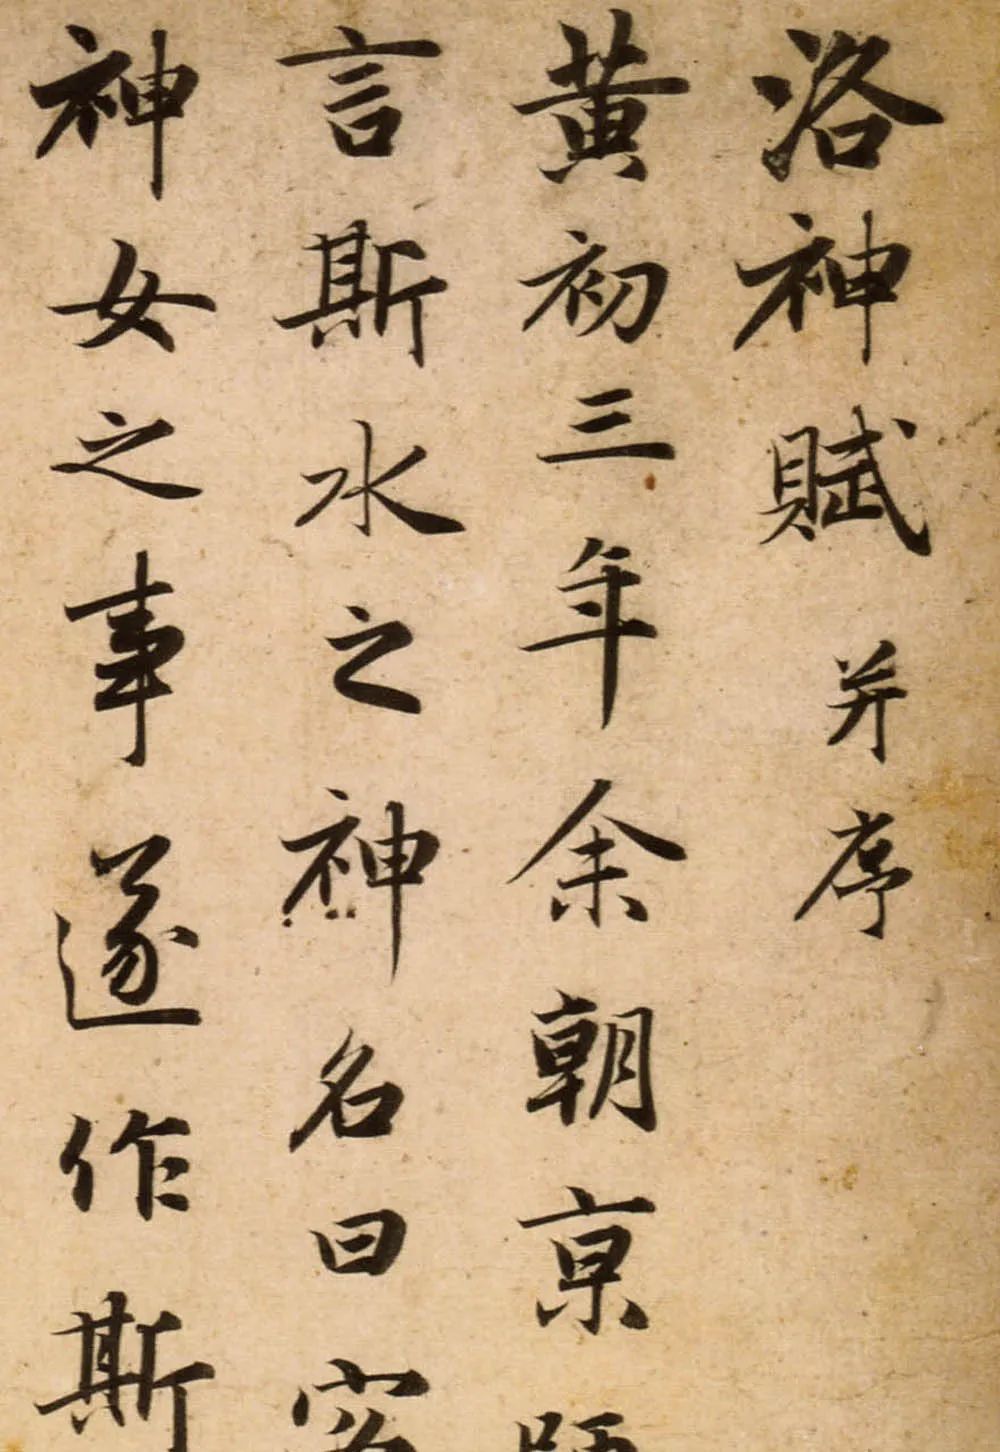 洛神賦并序
黄初三年余朝京師
言斯水之神名曰宓
神女之事遂作斯